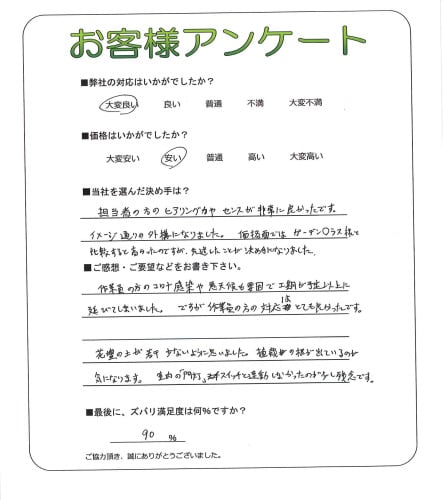 お客様アンケート
■弊社の対応はいかがでしたか？
大変良い 良い 普通 不満 大変不満
■価格はいかがでしたか？
大変安い 安い 普通 高い 大変高い
■当社を選んだ決め手は？
担当者の方のヒアリング力や センスが非常に良かったです。
イメージ通りの外構になりました。 価格面では ガーデン〇ラス様と
比較すると高かったのですが、 ことが決め手になりました。
■ご感想・ご要望などをお書き下さい。
作業員の方のコロナ感染や悪天候も要因で工期が予定以上に
延びてしまいました。 ですが作業員の方の対応はとても良かったです。
花壇の土が若干少ないように思いました。 植栽の根が出ているのが
気になります。 「門灯」 スイッチと連動しなかったのが少し残念です。
■最後に、ズバリ満足度は何％ですか？
90 ％
ご協力頂き、誠にありがとうございました。